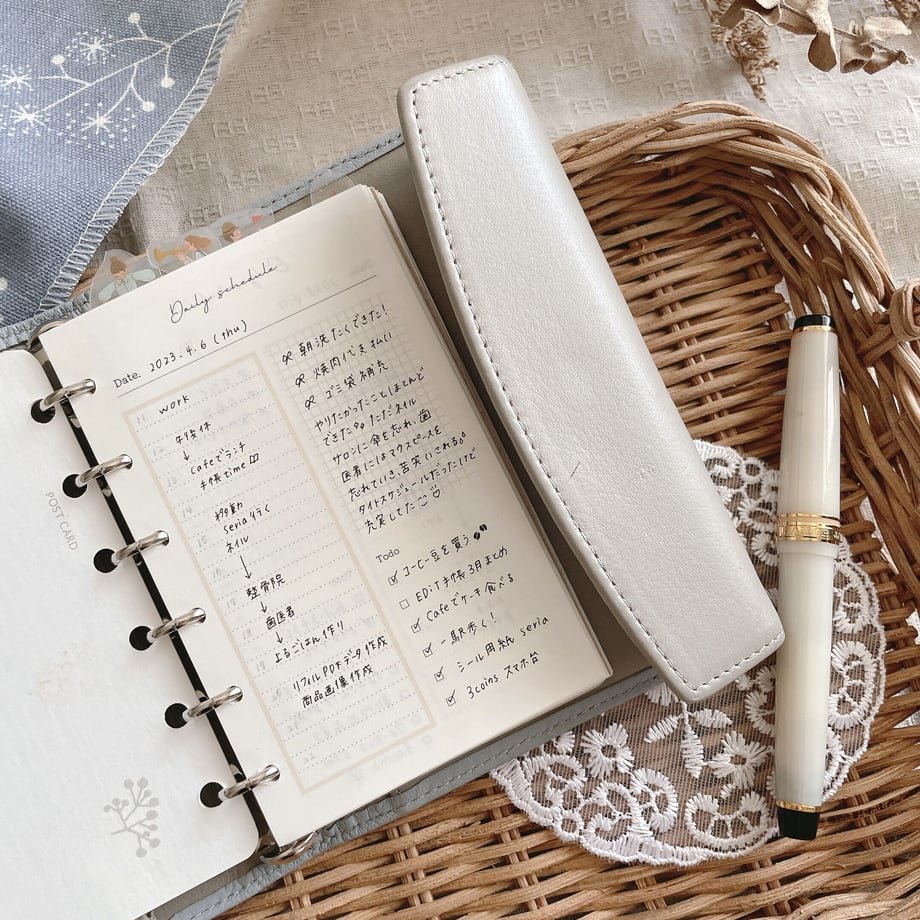 POST CARD
Daily schedule
Date. 2023.4.6 (thu)
11 work
12 午後休
↓
Cafeでランチ
手帳time
14 移動
seria行く
15 ネイル
↓
17 整骨院
↓
歯医者
↓
19 よるごはん作り
リフィルPDFデータ作成
商品画像作成
朝洗たくできた!
焼肉代支払い
ゴミ袋補充
やりたかったことほとんど
できた ただネイル
サロンに傘を忘れ、歯
医者にはマウスピースを
忘れていき苦笑いされる
タイトスケジュールだったけど
充実してた♡
Todo
☑ コーヒー豆を買う
☐ ED・T手帳3月まとめ
☑ Cafeでケーキ食べる
☑ 一駅歩く!
☑ シール用紙 seria
☑ 3coins スマホ台